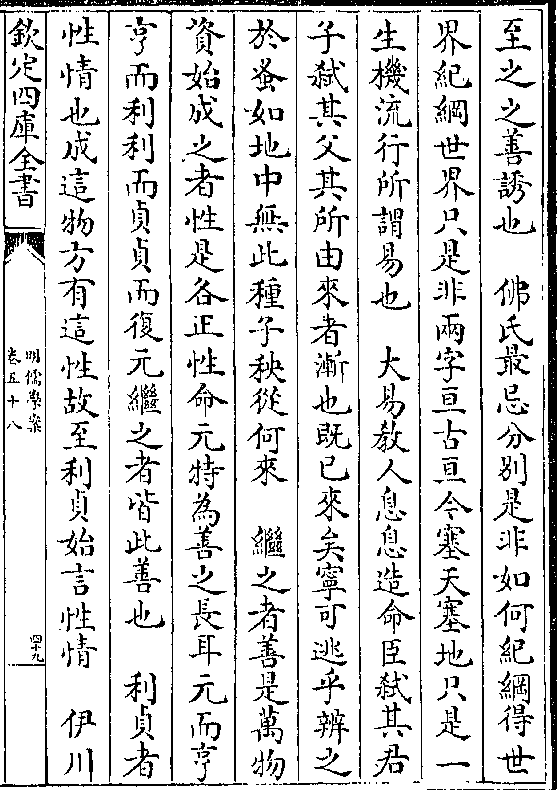 至之之善誘也　佛氏最忌分別是非如何紀綱得世
界紀綱世界只是非兩字亘古亘今塞天塞地只是一
生機流行所謂易也　大易教人息息造命臣弑其君
子弑其父其所由來者漸也既已來矣寧可逃乎辨之
於蚤如地中無此種子秧從何來　繼之者善是萬物
資始成之者性是各正性命元特為善之長耳元而亨
亨而利利而貞貞而復元繼之者皆此善也　利貞者
性情也成這物方有這性故至利貞始言性情　伊川
欽定四庫全書
明儒學案
卷五十八
四十九